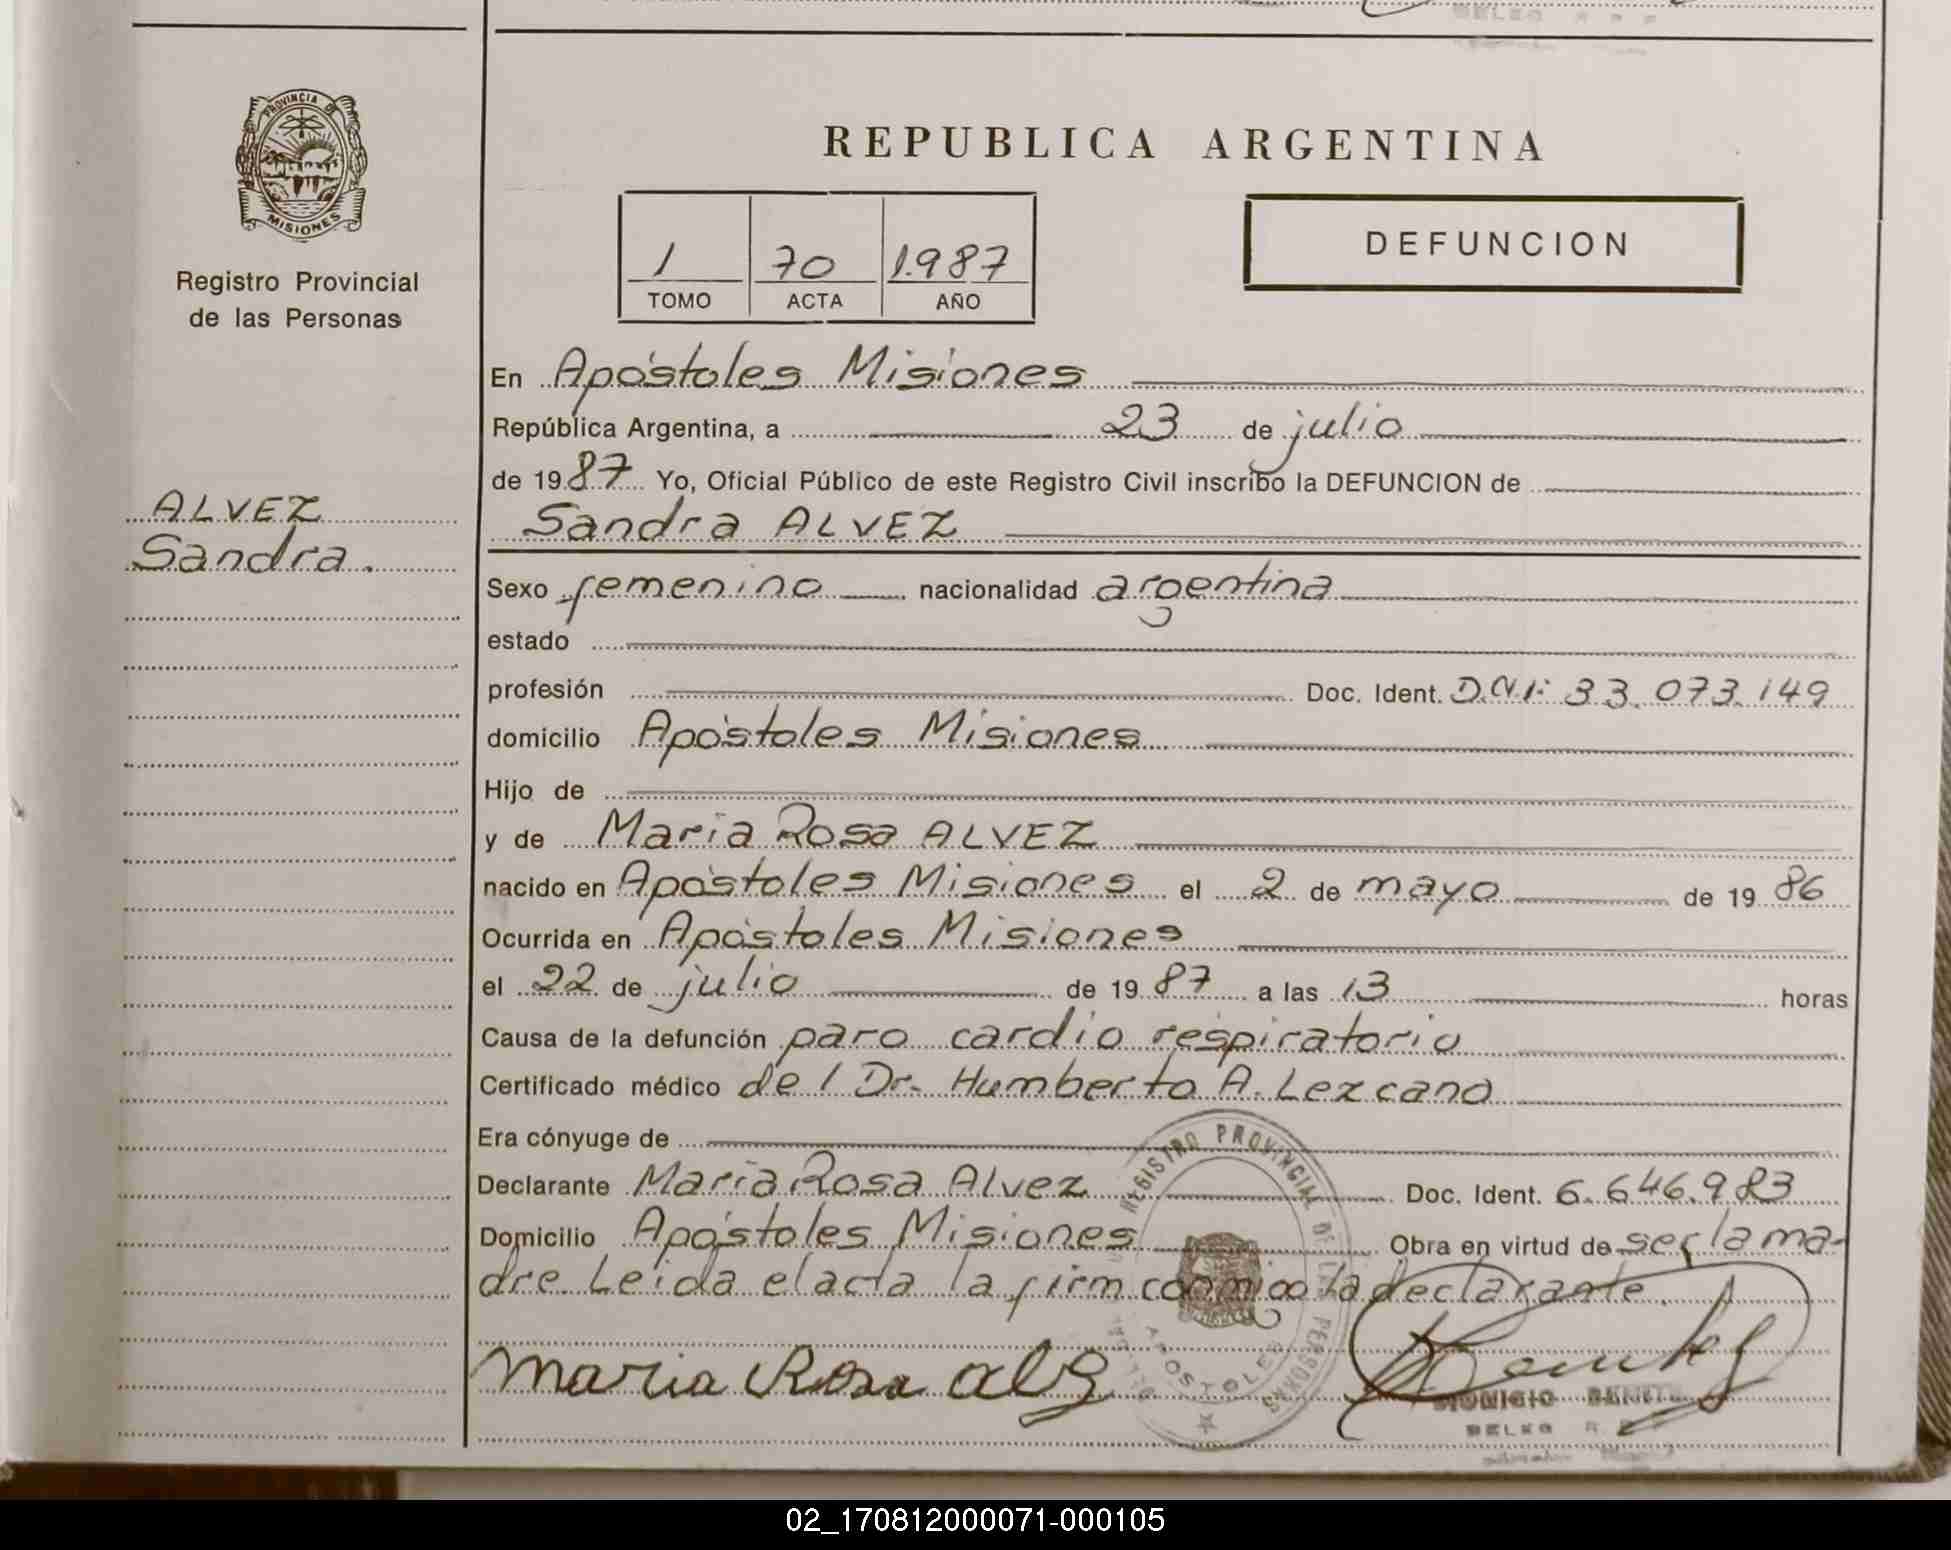 PROVINCIA DE
MISIONES
Registro Provincial
de las Personas
ALVEZ
Sandra.
REPUBLICA ARGENTINA
1 70 1.987
TOMO ACTA AÑO
DEFUNCION
En Apóstoles Misiones
República Argentina, a 23 de julio
de 1987 Yo, Oficial Público de este Registro Civil inscribo la DEFUNCION de
Sandra ALVEZ
Sexo femenino nacionalidad argentina
estado
profesión Doc. Ident. D.N.I: 33.073.149
domicilio Apóstoles Misiones
Hijo de
y de Maria Rosa ALVEZ
nacido en Apóstoles Misiones el 2 de mayo de 1986
Ocurrida en Apóstoles Misiones
el 22 de julio de 1987 a las 13 horas
Causa de la defunción paro cardio respiratorio
Certificado médico del Dr. Humberto A. Lezcano
Era cónyuge de
Declarante Maria Rosa Alvez Doc. Ident. 6.646.983
Domicilio Apóstoles Misiones Obra en virtud de ser la ma-
dre. Leida el acta la firm conmigo la declarante.
Maria Rosa
REGISTRO PROVINCIAL DE LAS PERSONAS
APOSTOLES
DIONICIO
DELEG R P P
02_170812000071-000105